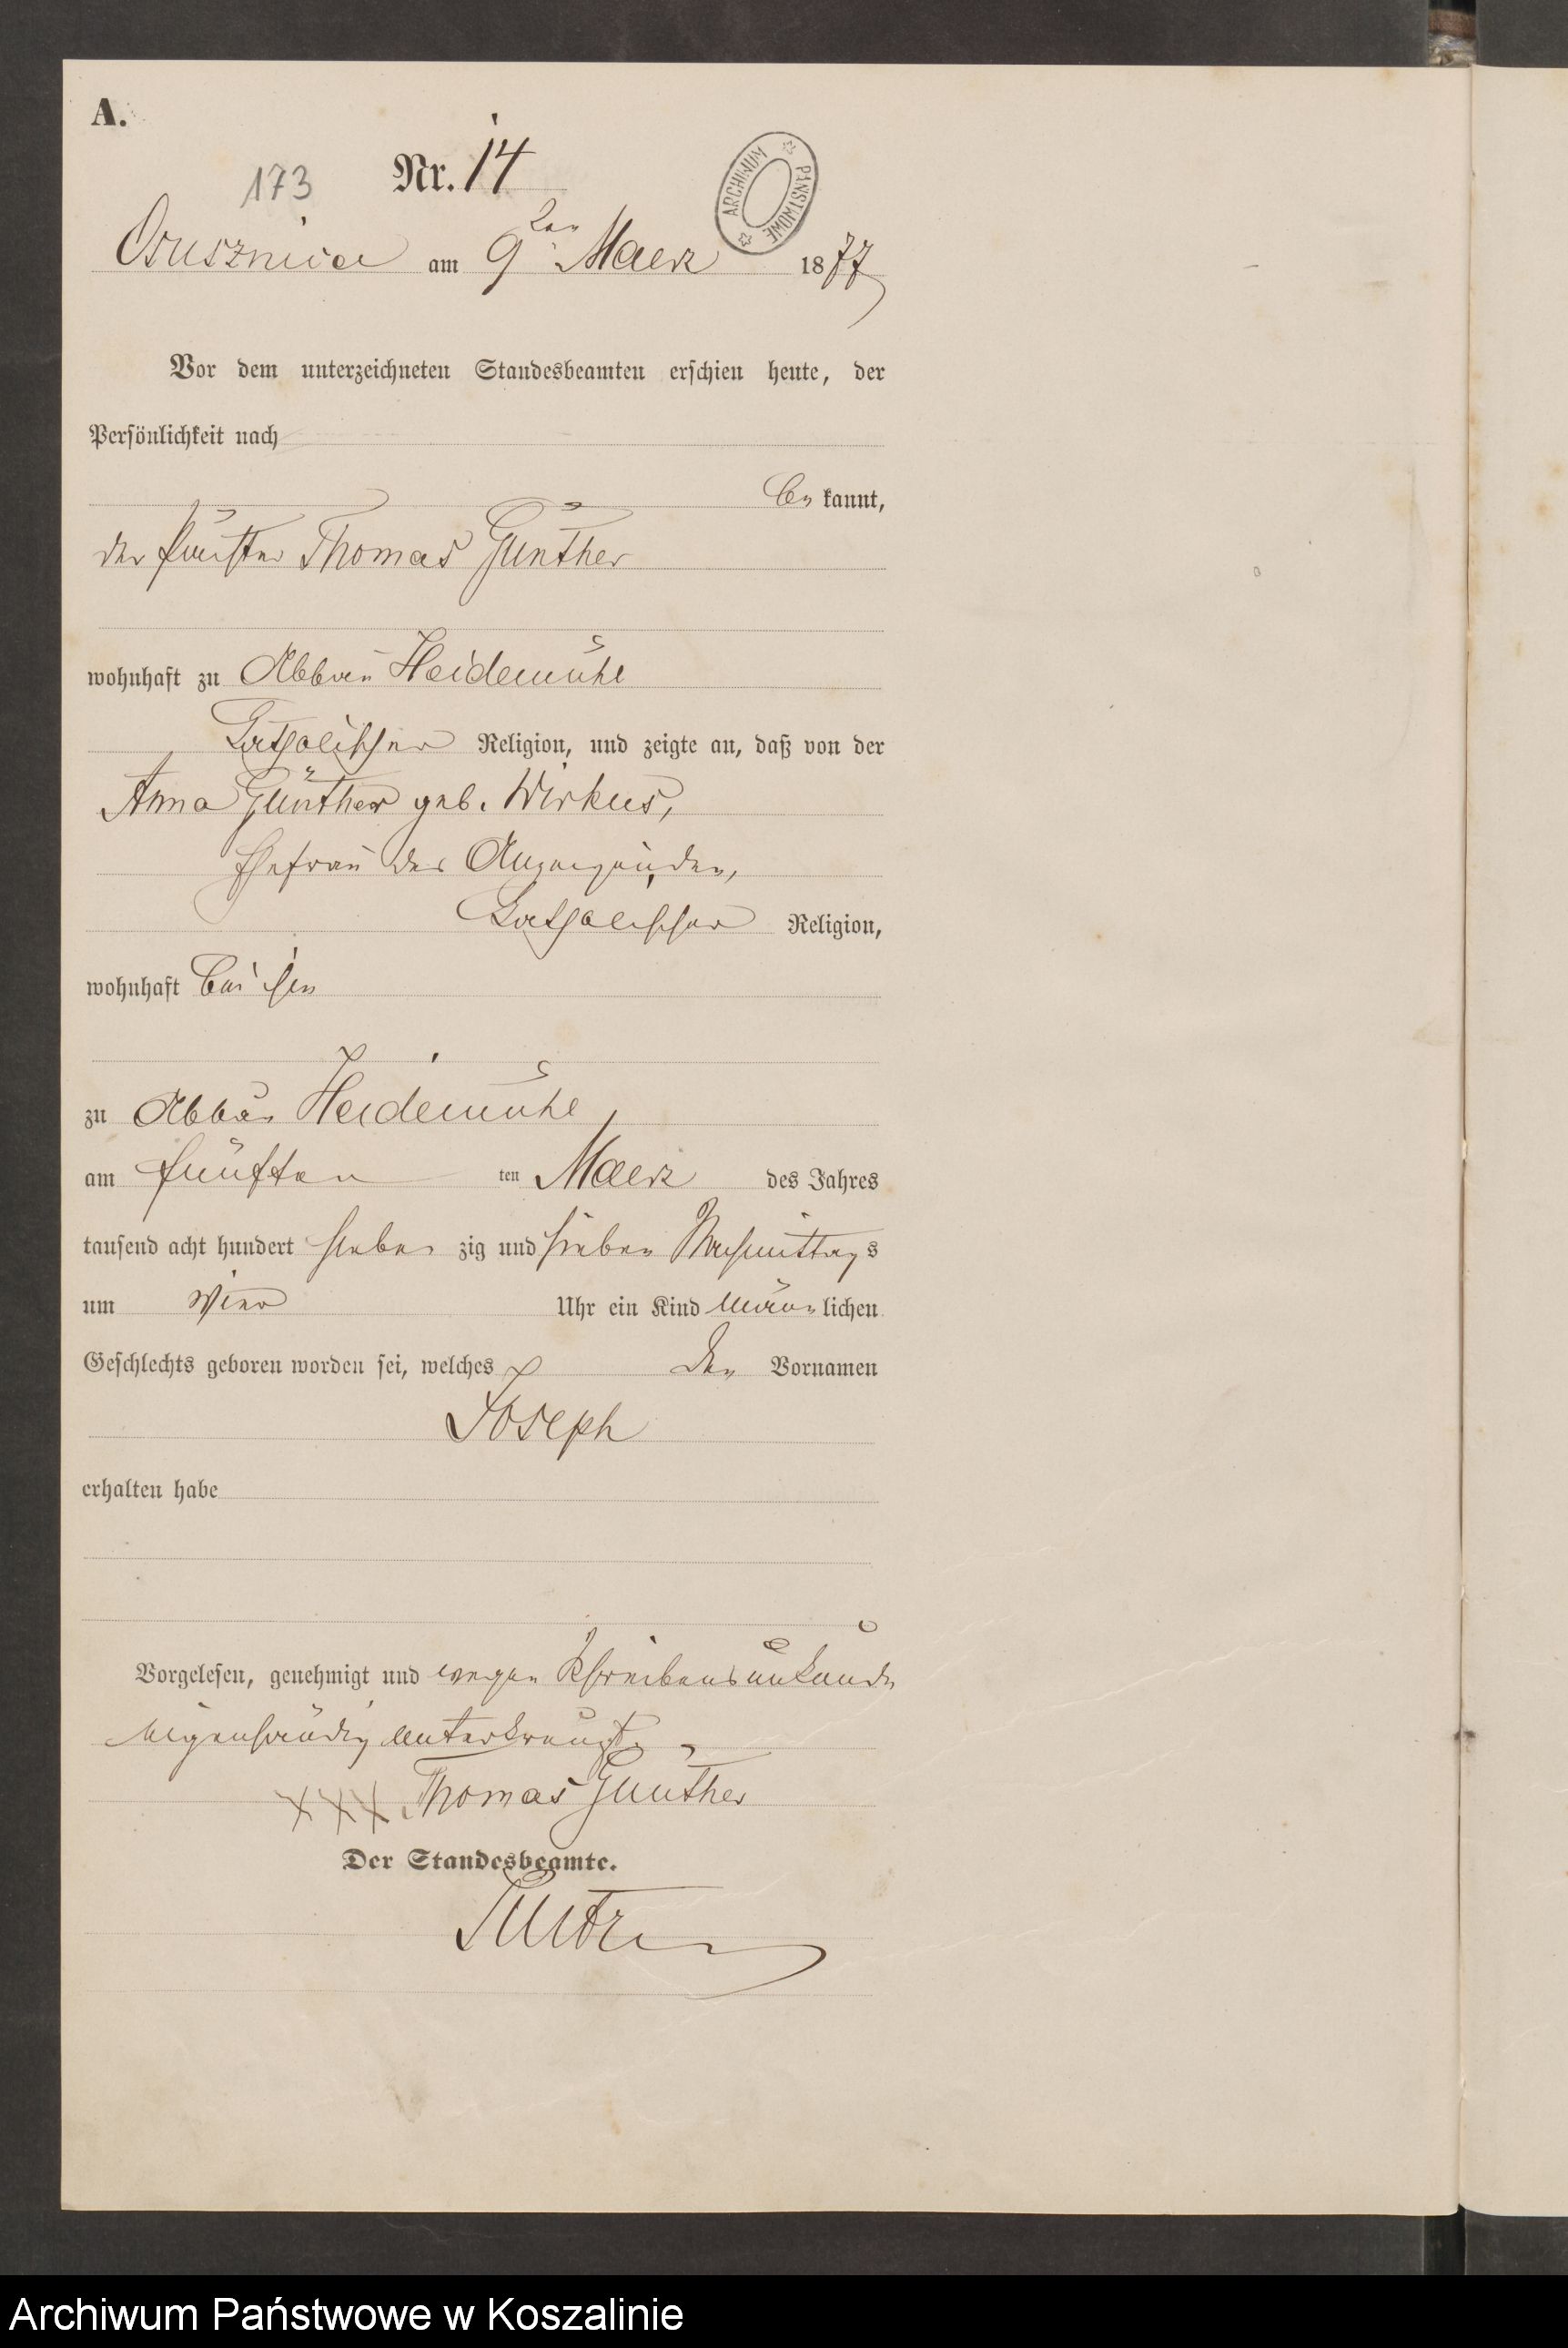 A.
173 Nr. 14
ARCHIWUM PAŃSTWOWE
Osusznica am 9ten Maerz 1877
Vor dem unterzeichneten Standesbeamten erschien heute, der
Persönlichkeit nach
be kannt,
der Thomas Günther
wohnhaft zu Abbau Heidemühl
katholischer Religion, und zeigte an, daß von der
Anna Günther geb. Wirkus,
Ehefrau des Anzeigenden,
katholischer Religion,
wohnhaft bei ihm
zu Abbau Heidemühl
am fünften ten Maerz des Jahres
tausend acht hundert sieben zig und sieben Nachmittags
um vier Uhr ein Kind männlichen
Geschlechts geboren worden sei, welches den Vornamen
Joseph
erhalten habe
Vorgelesen, genehmigt und wegen Schreibensunkunde
eigenhändig unterkreuzt.
XXX Thomas Günther
Der Standesbeamte.
Archiwum Państwowe w Koszalinie